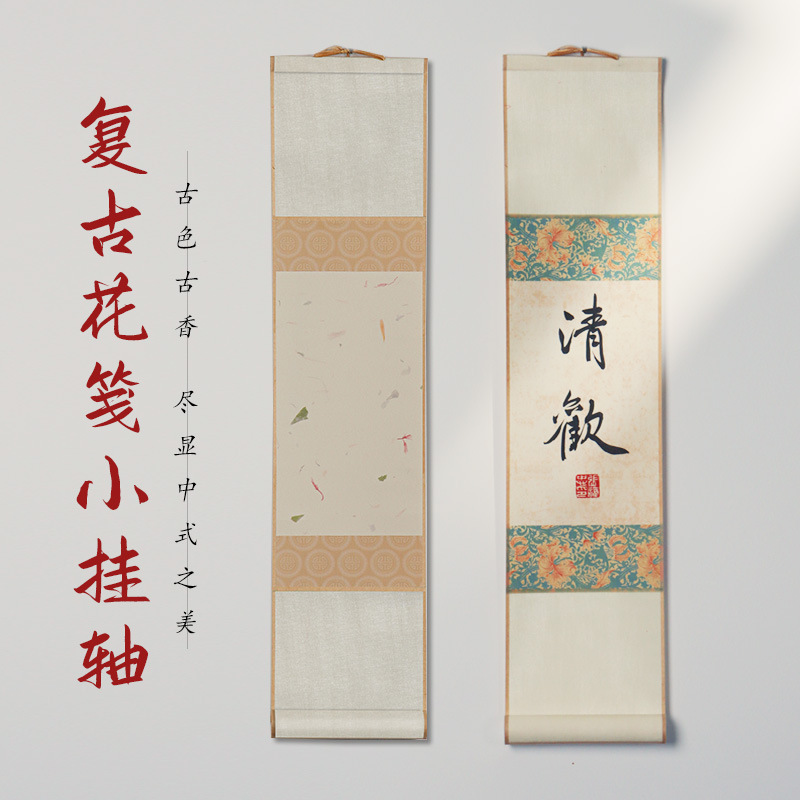 复古花笺小挂轴
古色古香 尽显中式之美
清歡